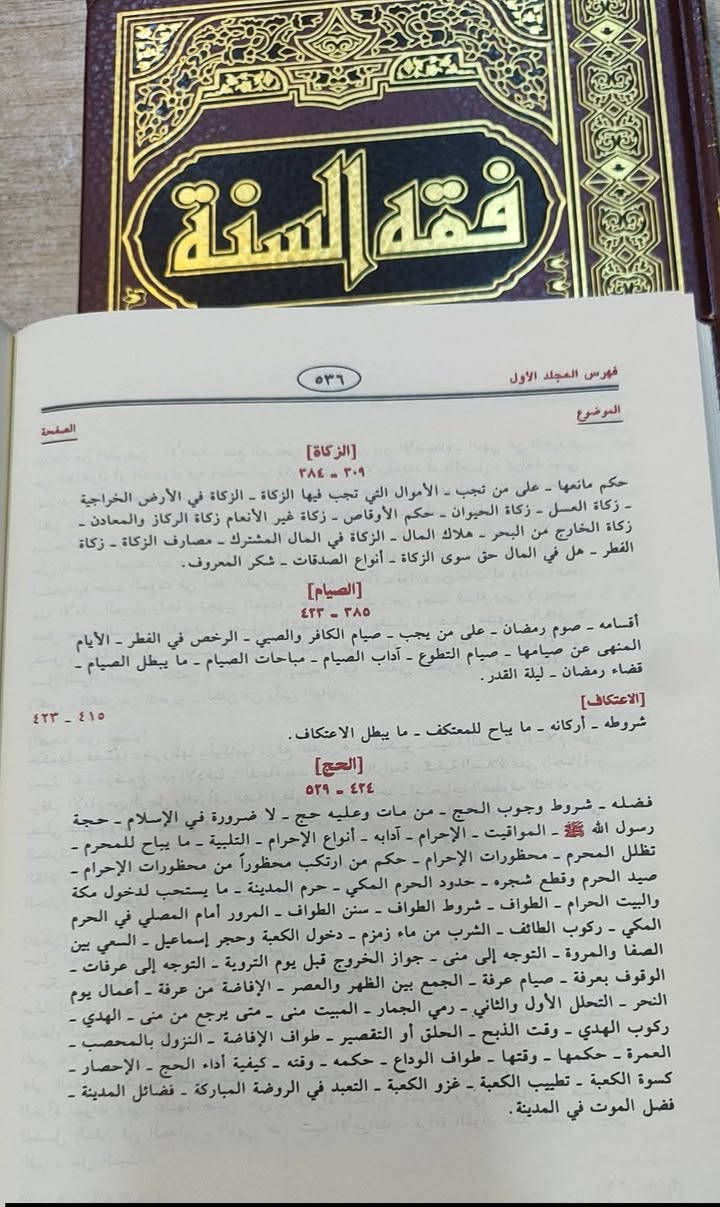 فقه السنة
فهرس المجلد الأول
٥٣٦
الموضوع
الصفحة
[الزكاة]
٣٠٩ ـ ٣٨٤
حكم مانعها ـ على من تجب ـ الأموال التي تجب فيها الزكاة ـ الزكاة في الأرض الخراجية
ـ زكاة العسل ـ زكاة الحيوان ـ حكم الأوقاص ـ زكاة غير الأنعام زكاة الركاز والمعادن ـ
زكاة الخارج من البحر ـ هلاك المال ـ الزكاة في المال المشترك ـ مصارف الزكاة ـ زكاة
الفطر ـ هل في المال حق سوى الزكاة ـ أنواع الصدقات ـ شكر المعروف.
[الصيام]
٣٨٥ ـ ٤٢٣
أقسامه ـ صوم رمضان ـ على من يجب ـ صيام الكافر والصبي ـ الرخص في الفطر ـ الأيام
المنهى عن صيامها ـ صيام التطوع ـ آداب الصيام ـ مباحات الصيام ـ ما يبطل الصيام ـ
قضاء رمضان ـ ليلة القدر.
[الاعتكاف]
٤١٥ ـ ٤٢٣
شروطه ـ أركانه ـ ما يباح للمعتكف ـ ما يبطل الاعتكاف.
[الحج]
٤٢٤ ـ ٥٢٩
فضله ـ شروط وجوب الحج ـ من مات وعليه حج ـ لا ضرورة في الإسلام ـ حجة
رسول الله ﷺ ـ المواقيت ـ الإحرام ـ آدابه ـ أنواع الإحرام ـ التلبية ـ ما يباح للمحرم ـ
تظلل المحرم ـ محظورات الإحرام ـ حكم من ارتكب محظوراً من محظورات الإحرام ـ
صيد الحرم وقطع شجره ـ حدود الحرم المكي ـ حرم المدينة ـ ما يستحب لدخول مكة
والبيت الحرام ـ الطواف ـ شروط الطواف ـ سنن الطواف ـ المرور أمام المصلي في الحرم
المكي ـ ركوب الطائف ـ الشرب من ماء زمزم ـ دخول الكعبة وحجر إسماعيل ـ السعي بين
الصفا والمروة ـ التوجه إلى منى ـ جواز الخروج قبل يوم التروية ـ التوجه إلى عرفات ـ
الوقوف بعرفة ـ صيام عرفة ـ الجمع بين الظهر والعصر ـ الإفاضة من عرفة ـ أعمال يوم
النحر ـ التحلل الأول والثاني ـ رمي الجمار ـ المبيت منى ـ متى يرجع من منى ـ الهدي ـ
ركوب الهدي ـ وقت الذبح ـ الحلق أو التقصير ـ طواف الإفاضة ـ النزول بالمحصب ـ
العمرة ـ حكمها ـ وقتها ـ طواف الوداع ـ حكمه ـ وقته ـ كيفية أداء الحج ـ الإحصار ـ
كسوة الكعبة ـ تطييب الكعبة ـ غزو الكعبة ـ التعبد في الروضة المباركة ـ فضائل المدينة ـ
فضل الموت في المدينة.